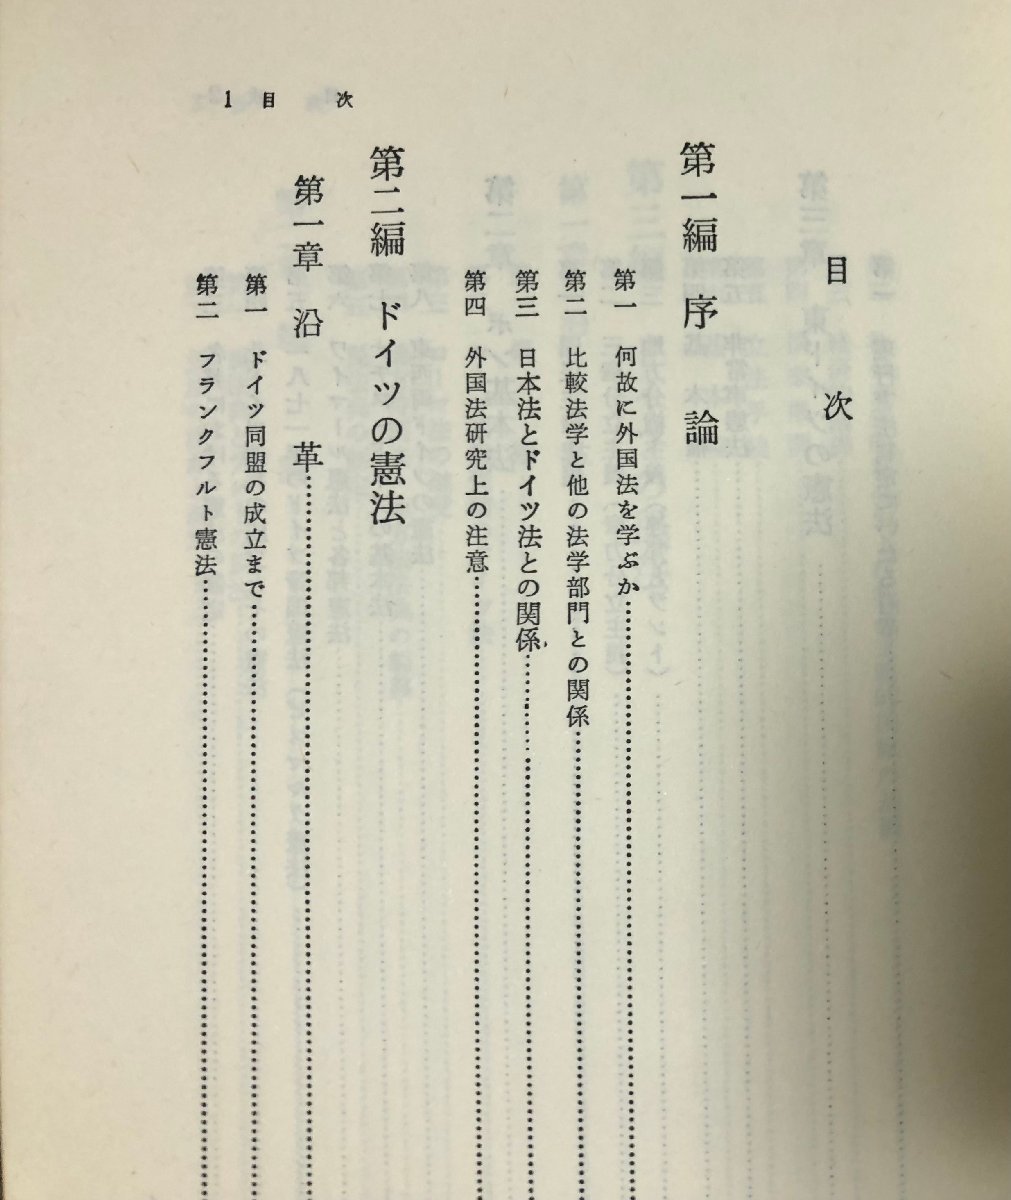 目次
第一編 序論
第一 何故に外国法を学ぶか
第二 比較法学と他の法学部門との関係
第三 日本法とドイツ法との関係
第四 外国法研究上の注意
第二編 ドイツの憲法
第一章 沿革
第一 ドイツ同盟の成立まで
第二 フランクフルト憲法
1 目次